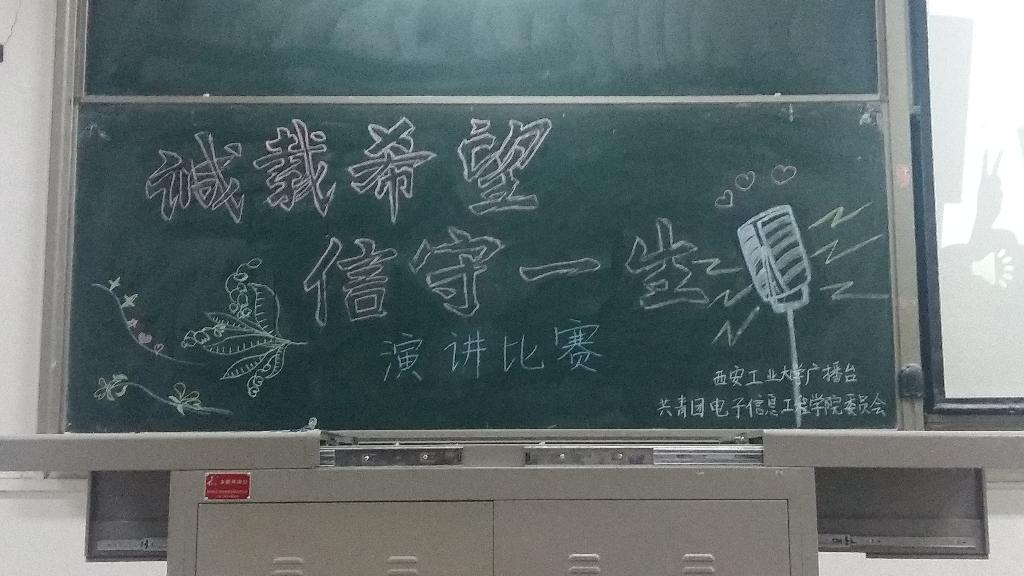 诚载希望
信守一生
演讲比赛
西安工业大学广播台
共青团电子信息工程学院委员会